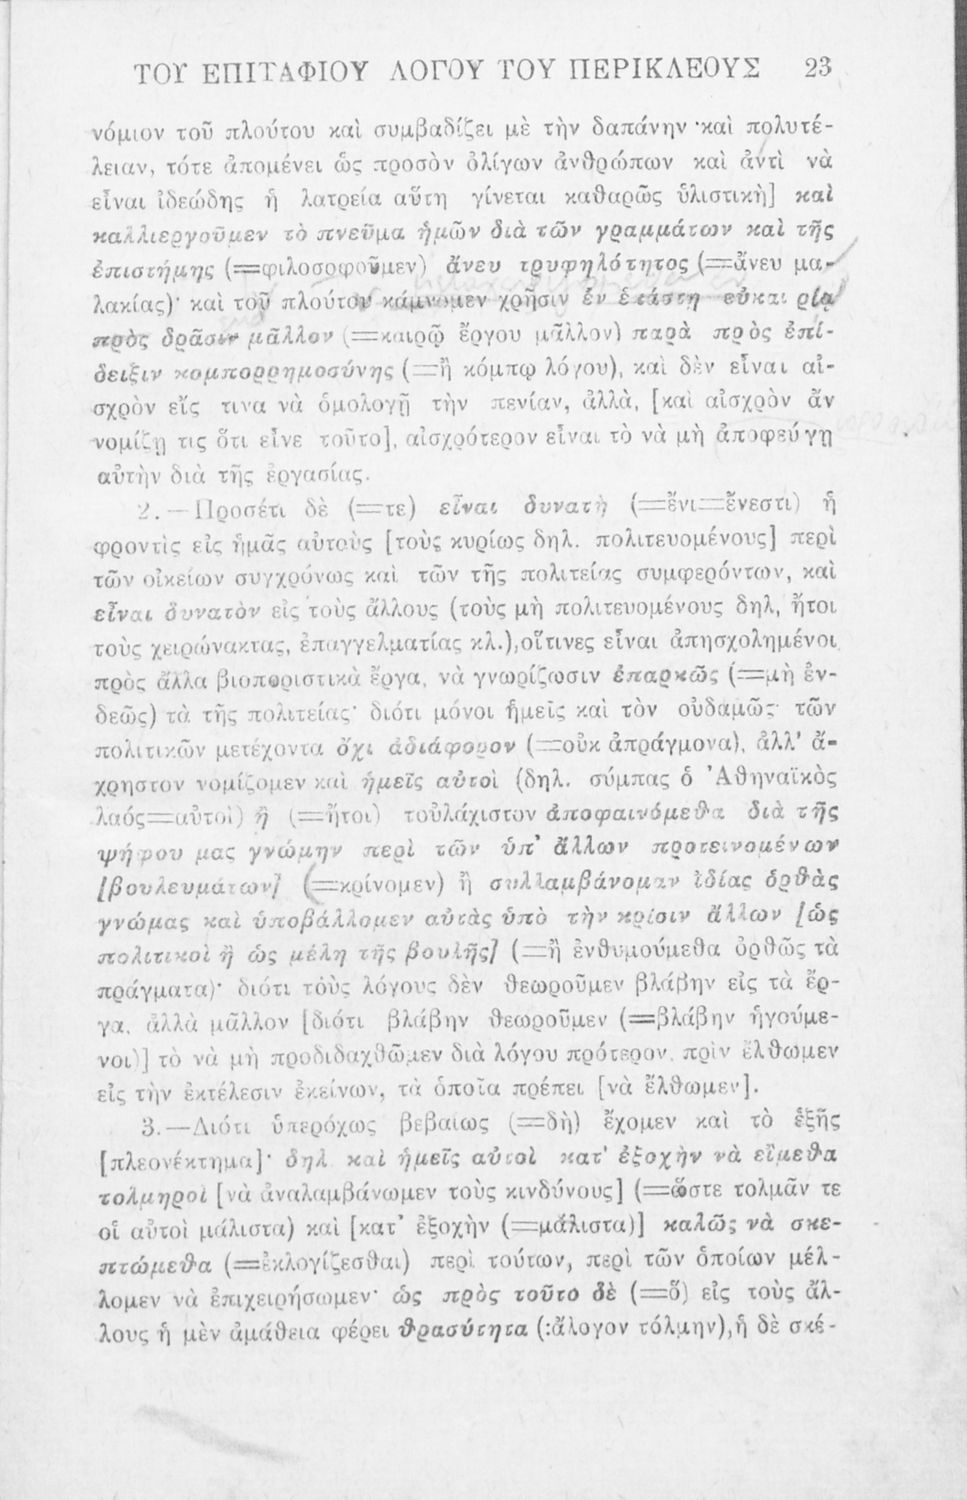 ΤΟΥ ΕΠΙΤΑΦΙΟΥ ΛΟΓΟΥ ΤΟΥ ΠΕΡΙΚΛΕΟΥΣ 23
νόμιον τοῦ πλούτου καὶ συμβαδίζει μὲ τὴν δαπάνην καὶ πολυτέ-
λειαν, τότε ἀπομένει ὡς προσὸν ὀλίγων ἀνθρώπων καὶ ἀντὶ νὰ
εἶναι ἰδεώδης ἡ λατρεία αὕτη γίνεται καθαρῶς ὑλιστικὴ] καὶ
καλλιεργοῦμεν τὸ πνεῦμα ἡμῶν διὰ τῶν γραμμάτων καὶ τῆς
ἐπιστήμης (=φιλοσοφοῦμεν) ἄνευ τρυφηλότητος (=ἄνευ μα-
λακίας)· καὶ τοῦ πλούτου κάμνομεν χρῆσιν ἐν ἑκάστῃ εὐκαιρίᾳ
πρὸς δρᾶσιν μᾶλλον (=καιρῷ ἔργου μᾶλλον) παρὰ πρὸς ἐπί-
δειξιν κομπορρημοσύνης (=ἢ κόμπῳ λόγου), καὶ δὲν εἶναι αἰ-
σχρὸν εἴς τινα νὰ ὁμολογῇ τὴν πενίαν, ἀλλὰ, [καὶ αἰσχρὸν ἂν
νομίζῃ τις ὅτι εἶνε τοῦτο], αἰσχρότερον εἶναι τὸ νὰ μὴ ἀποφεύγῃ
αὐτὴν διὰ τῆς ἐργασίας.
2.—Προσέτι δὲ (=τε) εἶναι δυνατὴ (=ἔνι=ἔνεστι) ἡ
φροντὶς εἰς ἡμᾶς αὐτοὺς [τοὺς κυρίως δηλ. πολιτευομένους] περὶ
τῶν οἰκείων συγχρόνως καὶ τῶν τῆς πολιτείας συμφερόντων, καὶ
εἶναι δυνατὸν εἰς τοὺς ἄλλους (τοὺς μὴ πολιτευομένους δηλ, ἤτοι
τοὺς χειρώνακτας, ἐπαγγελματίας κλ.),οἵτινες εἶναι ἀπησχολημένοι
πρὸς ἄλλα βιοποριστικὰ ἔργα, νὰ γνωρίζωσιν ἐπαρκῶς (=μὴ ἐν-
δεῶς) τὰ τῆς πολιτείας· διότι μόνοι ἡμεῖς καὶ τὸν οὐδαμῶς τῶν
πολιτικῶν μετέχοντα ὄχι ἀδιάφορον (=οὐκ ἀπράγμονα), ἀλλ' ἄ-
χρηστον νομίζομεν καὶ ἡμεῖς αὐτοὶ (δηλ. σύμπας ὁ Ἀθηναϊκὸς
λαός=αὐτοὶ) ἢ (=ἤτοι) τοὐλάχιστον ἀποφαινόμεθα διὰ τῆς
ψήφου μας γνώμην περὶ τῶν ὑπ' ἄλλων προτεινομένων
[βουλευμάτων] (=κρίνομεν) ἢ συλλαμβάνομεν ἰδίας ὀρθὰς
γνώμας καὶ ὑποβάλλομεν αὐτὰς ὑπὸ τὴν κρίσιν ἄλλων [ὡς
πολιτικοὶ ἢ ὡς μέλη τῆς βουλῆς] (=ἢ ἐνθυμούμεθα ὀρθῶς τὰ
πράγματα)· διότι τοὺς λόγους δὲν θεωροῦμεν βλάβην εἰς τὰ ἔρ-
γα, ἀλλὰ μᾶλλον [διότι βλάβην θεωροῦμεν (=βλάβην ἡγούμε-
νοι)] τὸ νὰ μὴ προδιδαχθῶμεν διὰ λόγου πρότερον, πρὶν ἔλθωμεν
εἰς τὴν ἐκτέλεσιν ἐκείνων, τὰ ὁποῖα πρέπει [νὰ ἔλθωμεν].
3.—Διότι ὑπερόχως βεβαίως (=δὴ) ἔχομεν καὶ τὸ ἑξῆς
[πλεονέκτημα]· δηλ καὶ ἡμεῖς αὐτοὶ κατ' ἐξοχὴν νὰ εἴμεθα
τολμηροὶ [νὰ ἀναλαμβάνωμεν τοὺς κινδύνους] (=ὥστε τολμᾶν τε
οἱ αὐτοὶ μάλιστα) καὶ [κατ' ἐξοχὴν (=μάλιστα)] καλῶς νὰ σκε-
πτώμεθα (=ἐκλογίζεσθαι) περὶ τούτων, περὶ τῶν ὁποίων μέλ-
λομεν νὰ ἐπιχειρήσωμεν· ὡς πρὸς τοῦτο δὲ (=ὃ) εἰς τοὺς ἄλ-
λους ἡ μὲν ἀμάθεια φέρει θρασύτητα (:ἄλογον τόλμην),ἡ δὲ σκέ-